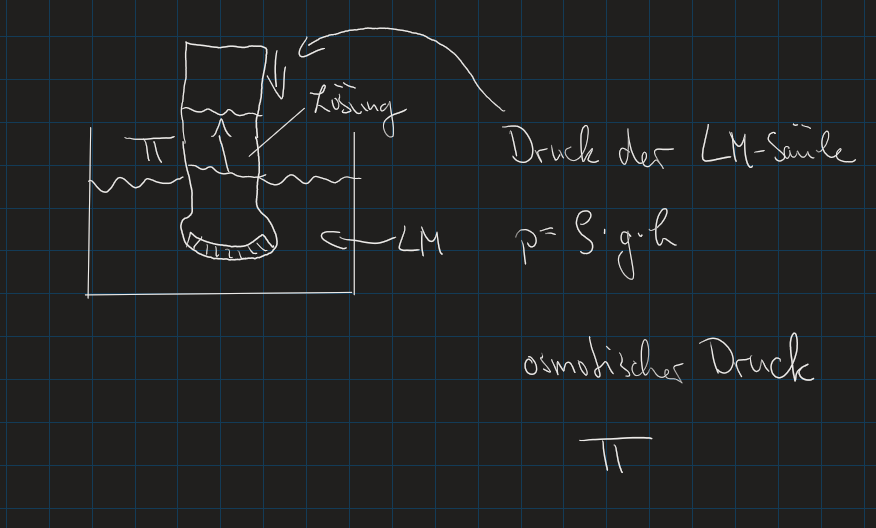 Lösung
π
Druck der LM-Säule
LM
p = ρ · g · h
osmotischer Druck
π